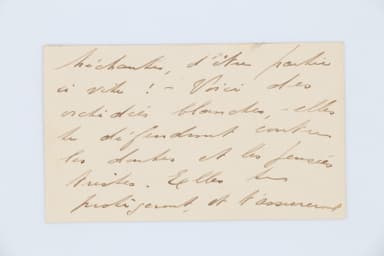 méchante, d'être partie
si vite ! - Voici des
orchidées blanches, elles
te défendront contre
les doutes et les pensées
tristes. Elles te
protègeront, et t'assureront